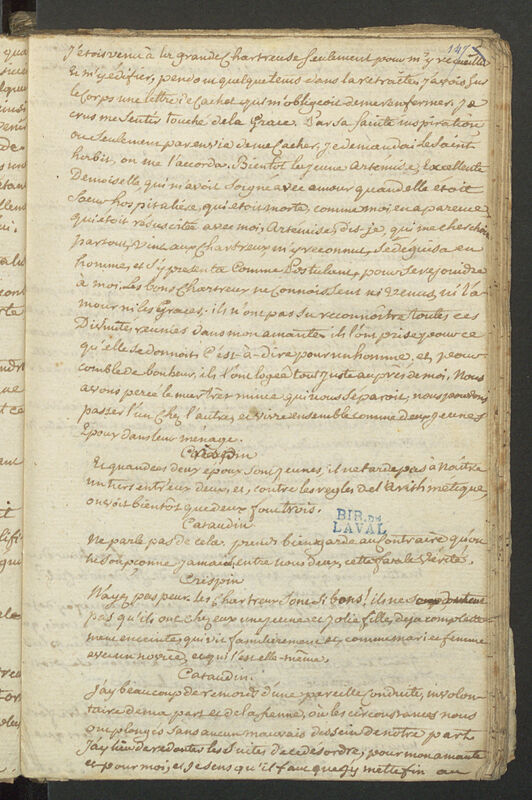 J'étois venu à la grande Chartreuse seulement pour m'y recueillir
Et m'y édifier, pendant quelque tems dans la retraite. j'avois sur
le corps une lettre de cachet qui m'obligeoit de me renfermer. Je
crus me sentir touché de la Grace. Par sa sainte inspiration
ou seulement par envie de me cacher, je demandai le saint
habit, on me l'accorda. Bientôt la jeune Artémise, Excellente
Demoiselle qui m'avoit soigné avec amour quand elle étoit
Sœur hospitalière, qui étoit morte, comme moi en aparence
qui étoit réssuscitée avec moi, Artemise, dis-je, qui me cherchoit
partout, vint aux Chartreux, m'y reconnut, se déguisa en
homme, et s'y présenta comme Postulant, pour se rejoindre
à moi. Les bons Chartreux ne connoissent ni Venus, ni l'A-
mour ni les Graces. ils n'ont pas su reconnoitre toutes ces
Divinités réunies dans mon amante. ils l'ont prise pour ce
qu'elle se donnoit, C'est-à-dire pour un homme, et, pour
comble de bonheur, ils l'ont logée tout juste auprès de moi. Nous
avons percé le mur très mince qui nous séparoit, nous pouvons
passer l'un chez l'autre, et vivre ensemble comme deux jeunes
Epoux dans leur ménage.
Crispin
Et quand ces deux époux sont jeunes, il ne tarde pas à Naître
un tiers entre eux deux, et, contre les règles de l'arithmetique,
on voit bientôt que deux font trois.
BIB. DE
LAVAL
Cataudin
Ne parle pas de cela. prends bien garde au Contraire qu'on
ne soupçonne jamais, entre nous deux, cette fatale Vérité.
Crispin
N'ayez pas peur. les Chartreux sont si bons! ils ne
pas qu'ils ont chez eux une jeune et jolie fille, déja complette-
ment enceinte, qui vit familièrement et comme mari et femme
avec un novice, et qui l'est elle-même.
Cataudin
J'ay beaucoup de remords d'une pareille conduite, involon-
taire de ma part et de la sienne, où les circonstances nous
ont plongés sans aucun mauvais dessein de notre part.
J'ay lieu de redouter les suites de ce desordre, pour mon amante
et pour moi, et je sens qu'il faut que j'y mette fin au